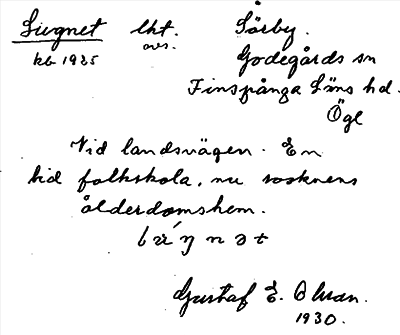 Lugnet lht. Sörby.
kb 1925 avs. Godegårds sn
Finspånga Läns hd.
Ögl
Vid landsvägen. En
tid folkskola, nu socknens
ålderdomshem.
Gustaf E. Olsson.
1930.